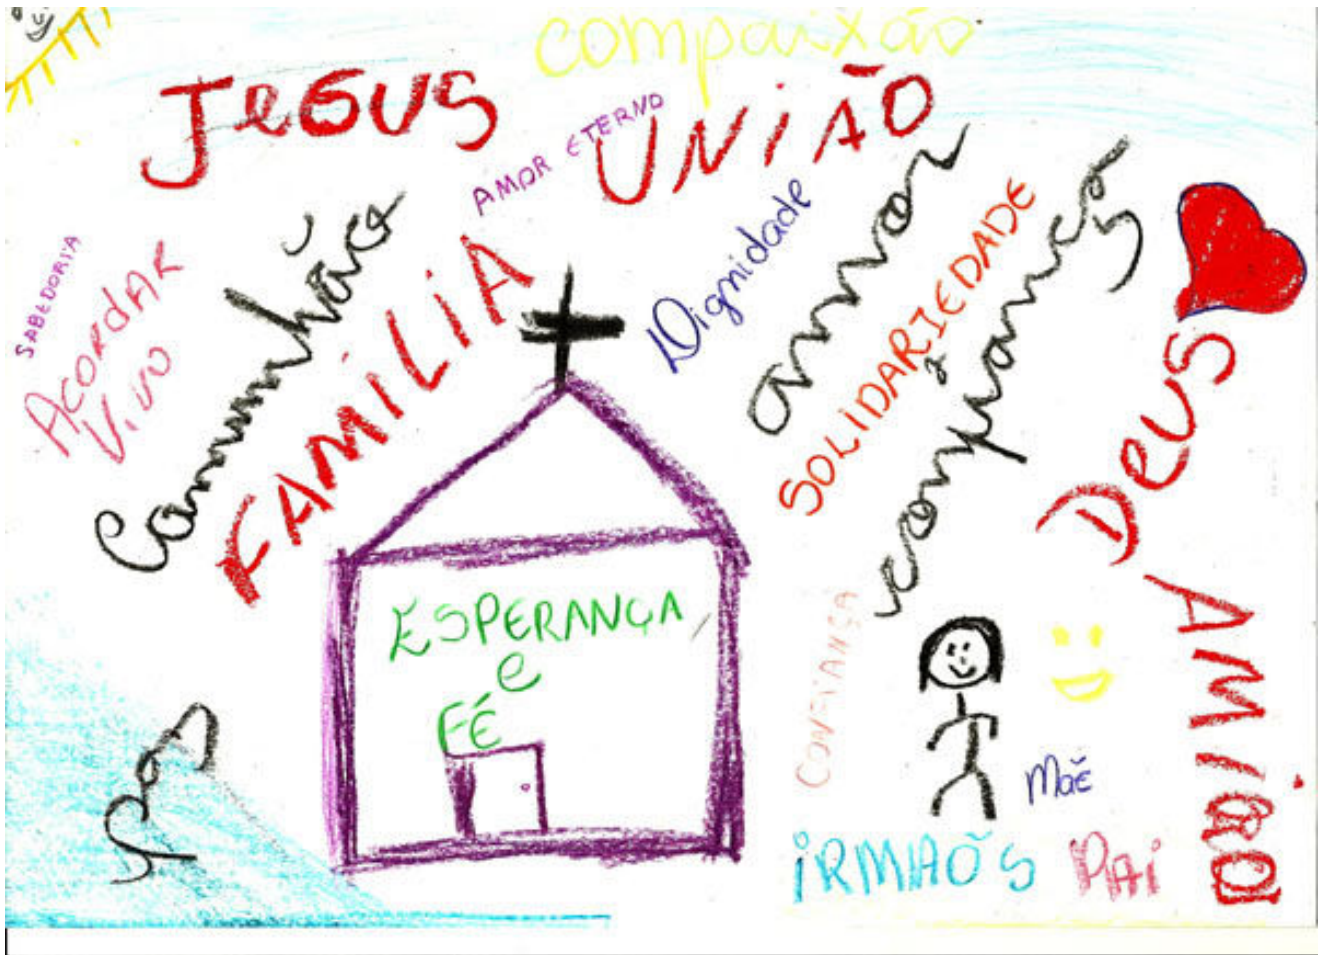 compaixão
JeSUS
UNiÃO
AMOR ETERNO
SABEDORIA
ACORDAR
VIVO
Comunhão
FAMÍLIA
Dignidade
amor
SOLIDARIEDADE
confiança
Deus
AMIGO
ESPERANÇA
e
FÉ
CONFIANÇA
paz
Mãe
iRMAÕS
PAi